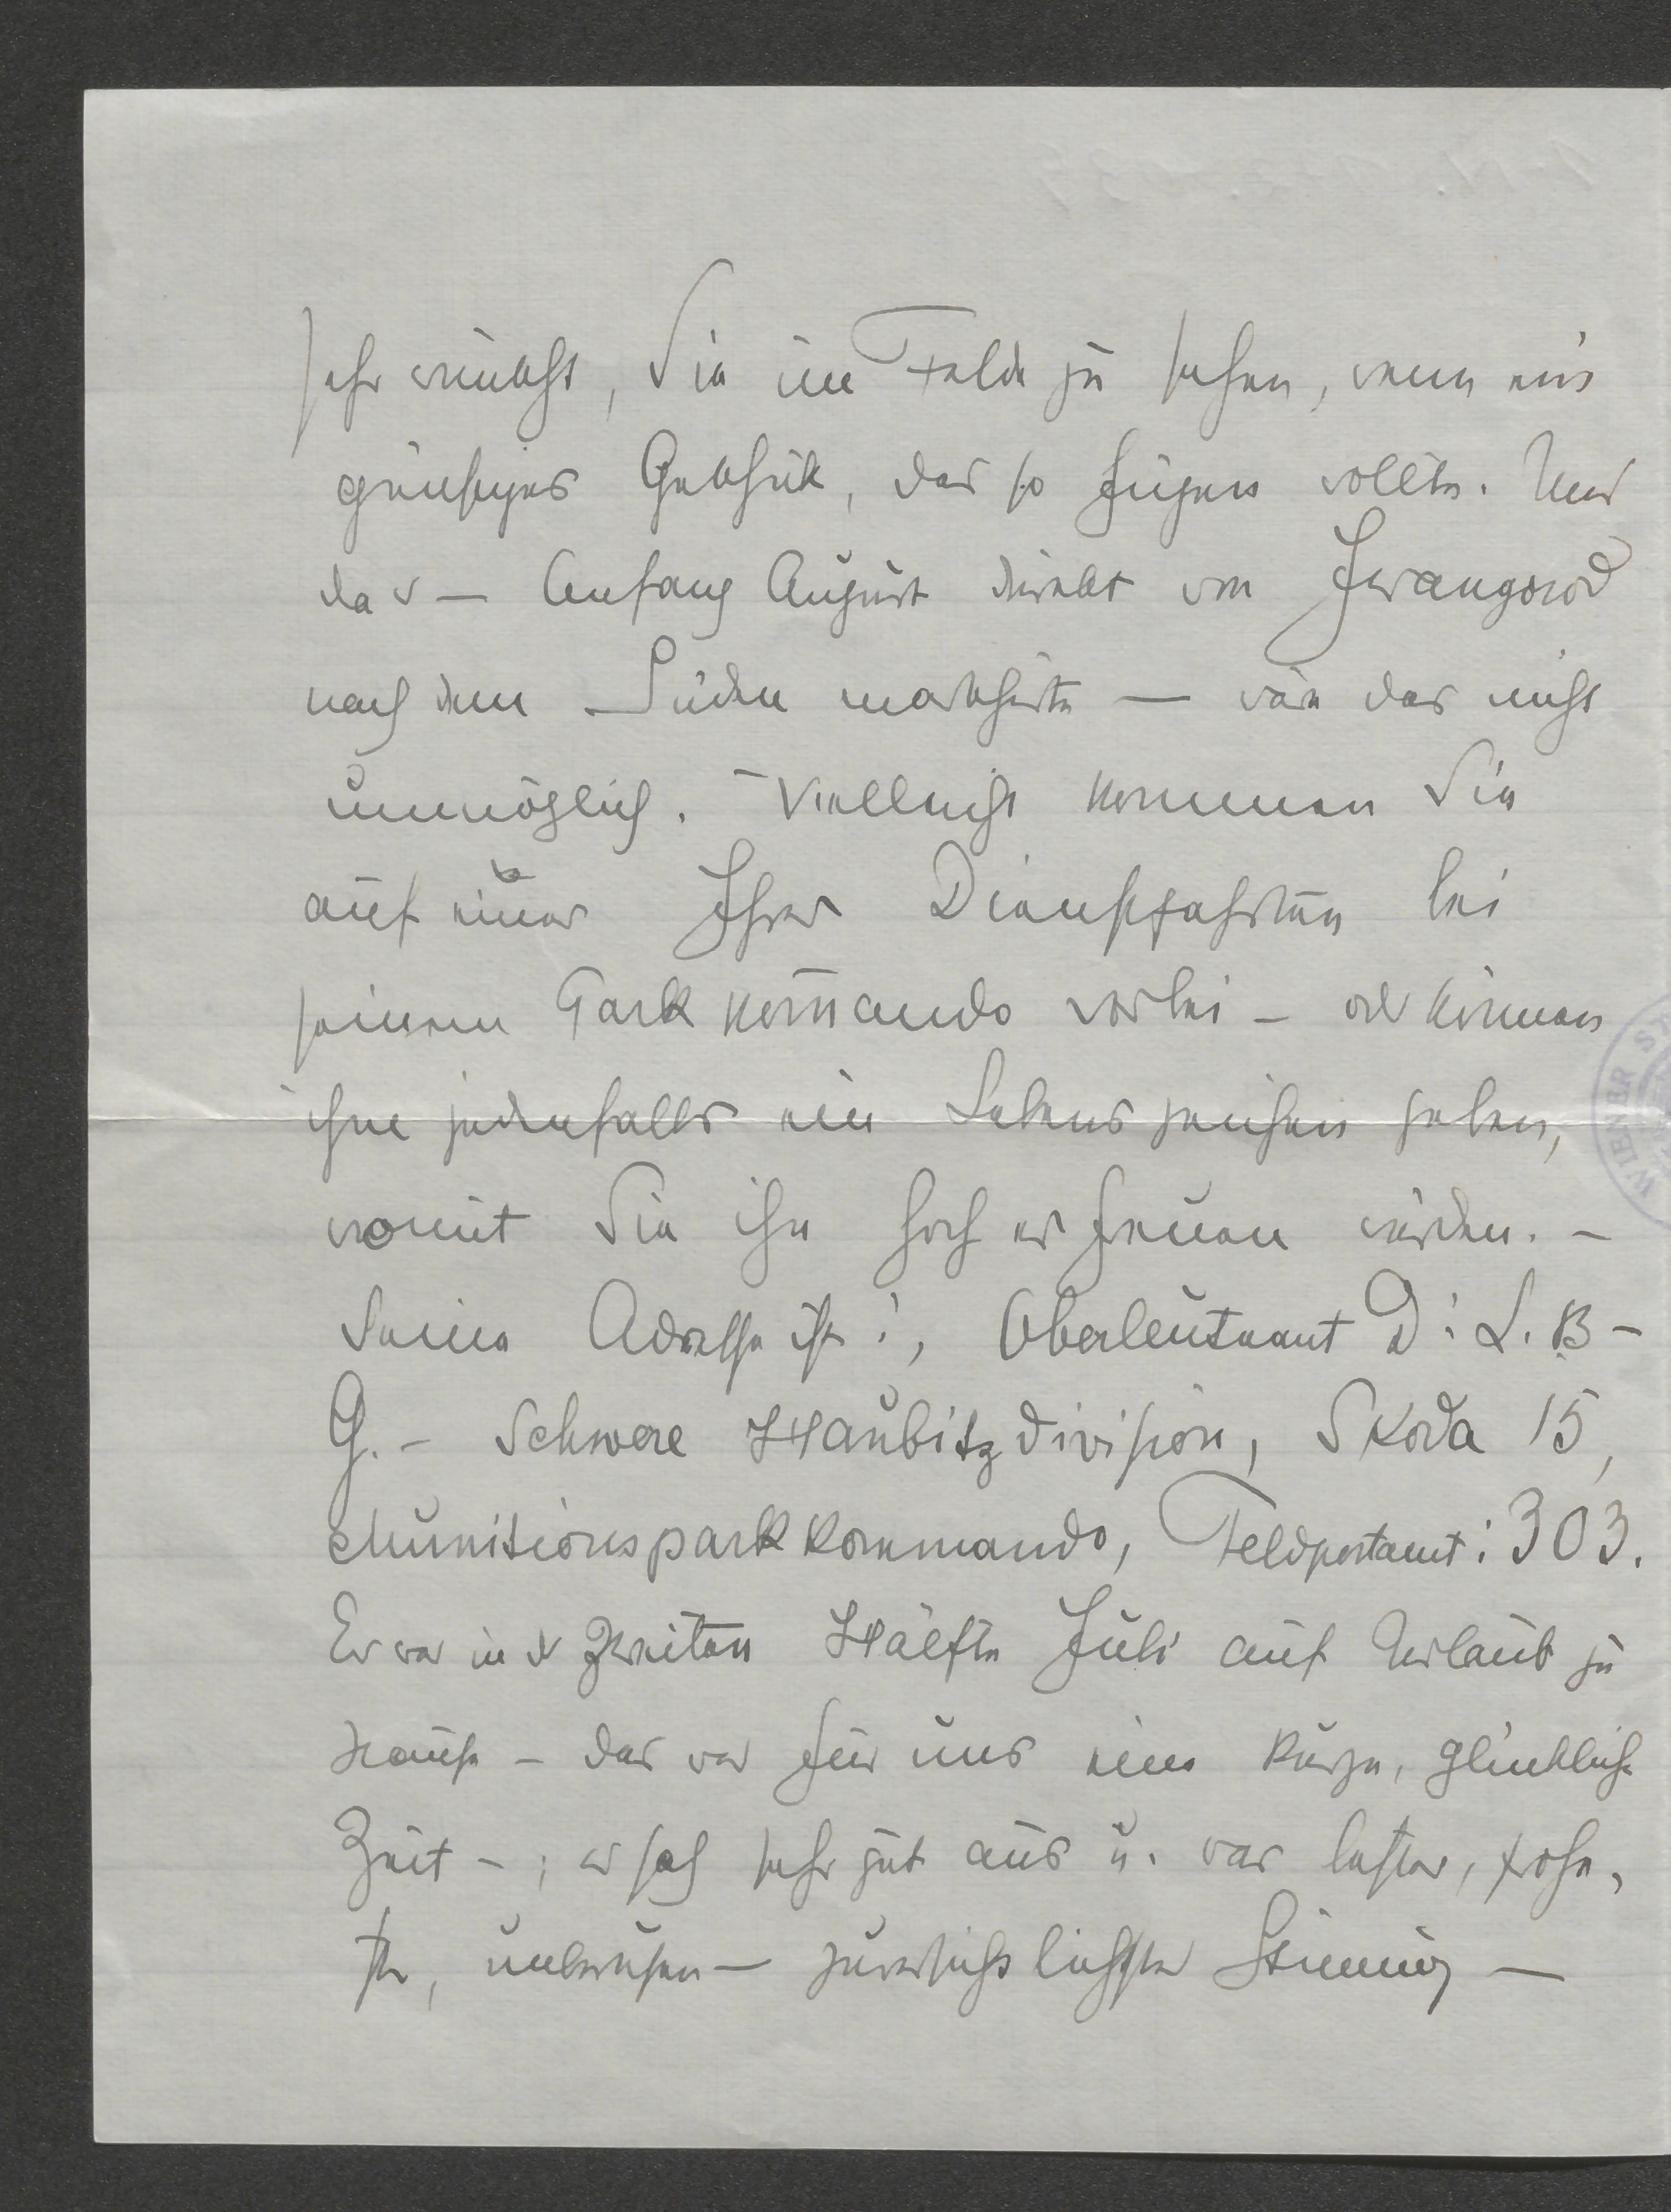 sehr wünscht, Sie im Felde zu sehen, wenn ein
günstiges Geschick, das so fügen wollte. Und
da er – Anfang August direkt von Iwangorod
nach dem Süden marschirte – wär das nicht
unmöglich. – Vielleicht kommen Sie
auf einer Ihrer Dienstfahrten bei
seinem Parkkom̄ando vorbei – od können
ihm jedenfalls ein Lebenszeichen geben,
womit Sie ihn hoch erfreuen würden. –
Seine Adresse ist:, Oberleutnant D: L. B–
G. – Schwere Haubitzdivision, Skoda 15,
Munitionsparkkommando, Feldpostamt: 303.
Er war in d zweiten Hälfte Juli auf Urlaub zu
Hause – das war für uns eine kurze, glückliche
Zeit –; er sah sehr gut aus u. war bester, froher,
unberufen – zuversichtlichster Stimmung –
WIENER